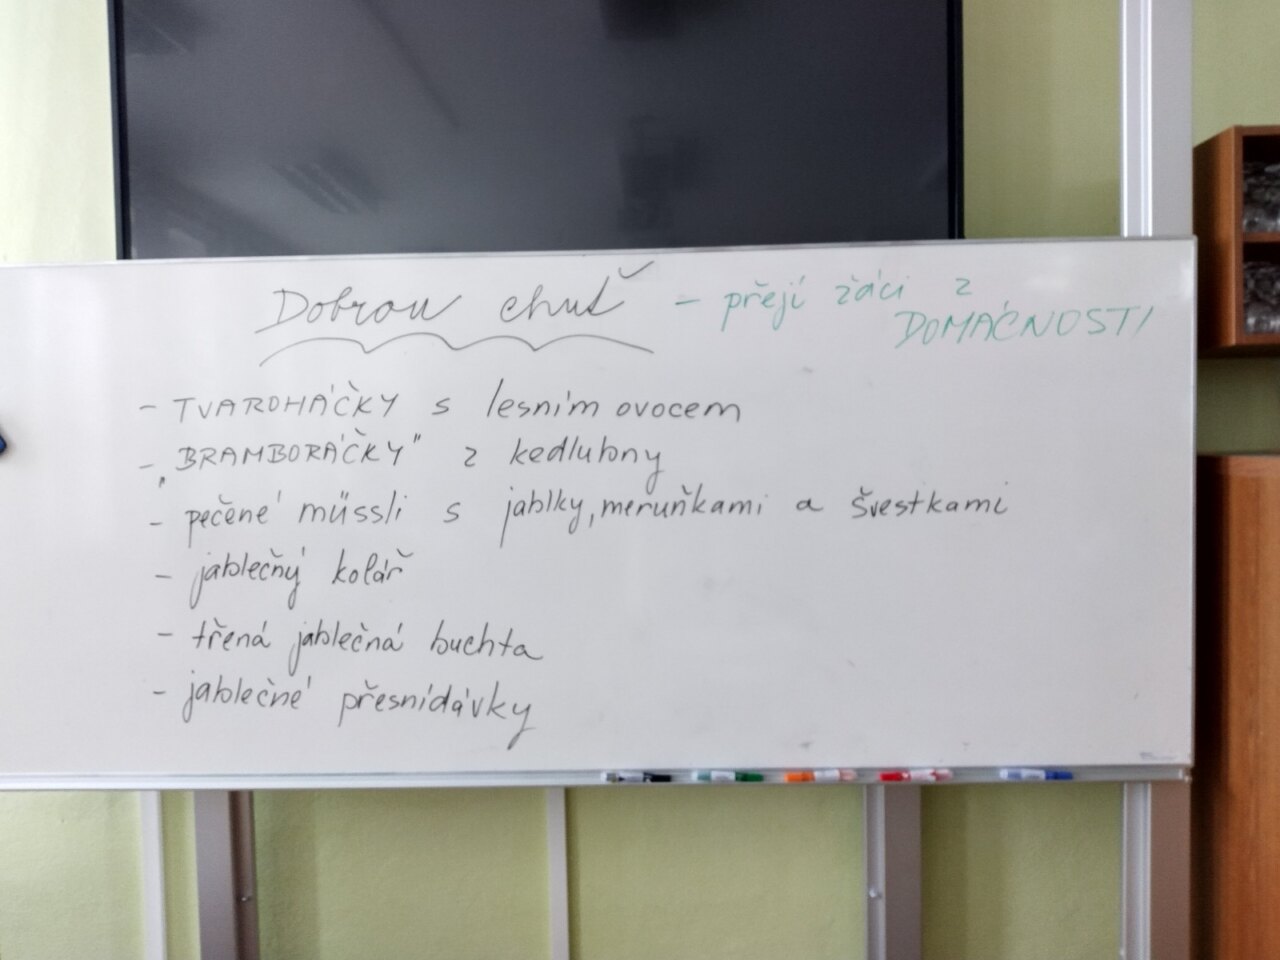 Dobrou chuť - přejí žáci z
DOMÁCNOSTI
- TVAROHÁČKY s lesním ovocem
- „BRAMBORÁČKY" z kedlubny
- pečené müssli s jablky, meruňkami a švestkami
- jablečný koláč
- třená jablečná buchta
- jablečné přesnídávky